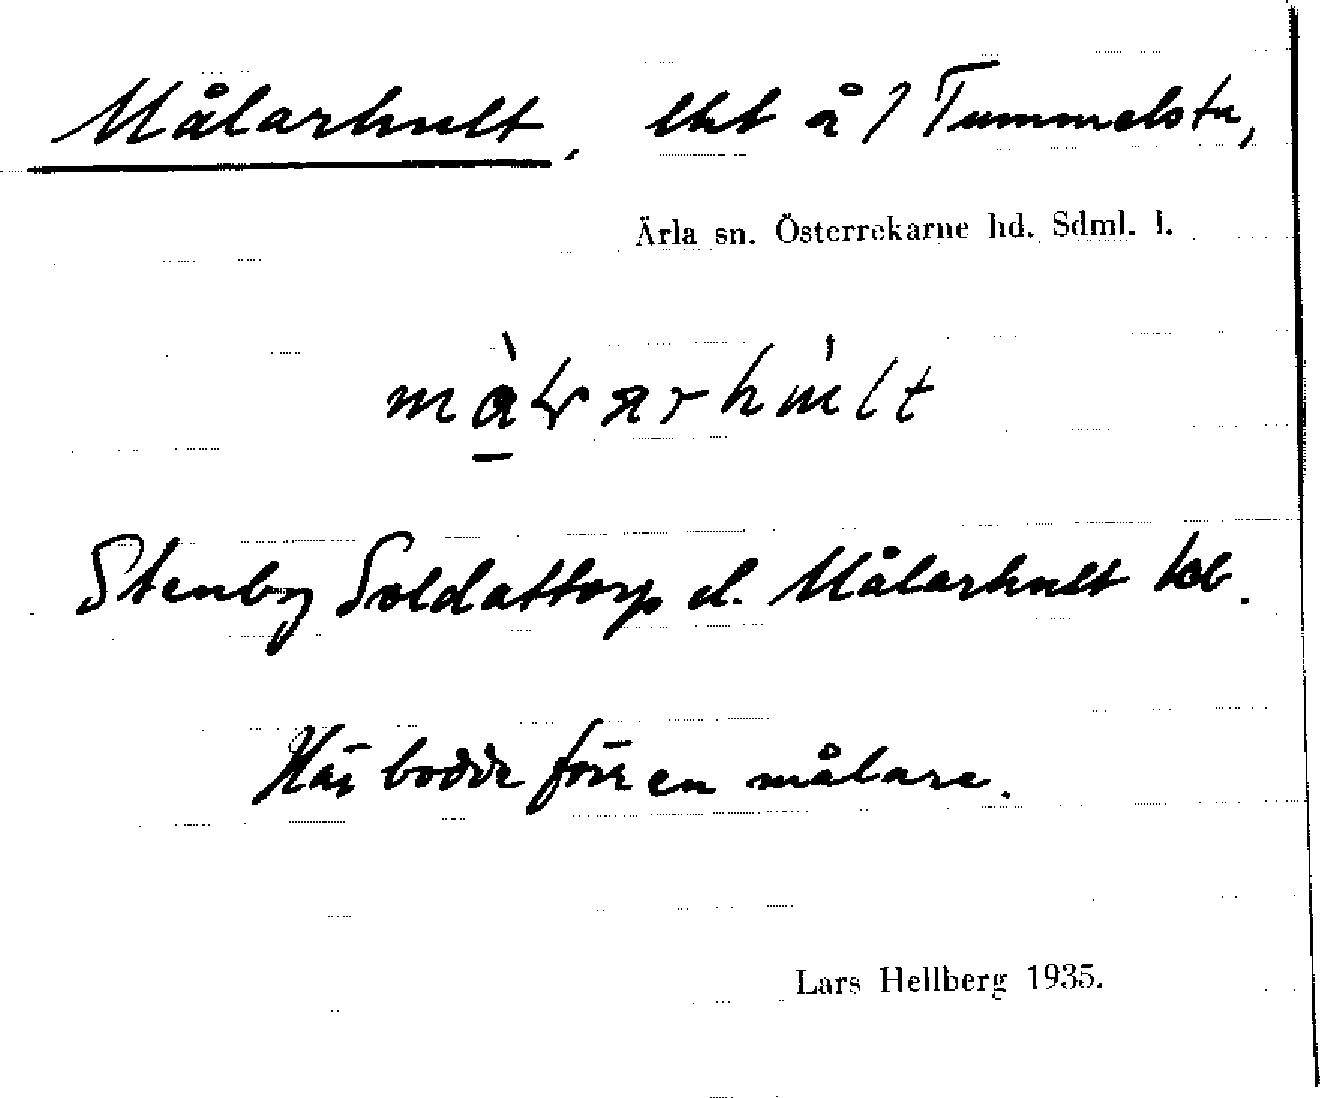 Målarhult, lht å / Tummelsta,
Ärla sn. Österrekarne hd. Sdml. l.
Stenby Soldattorp el. Målarhult
Här bodde förr en målare.
Lars Hellberg 1935.